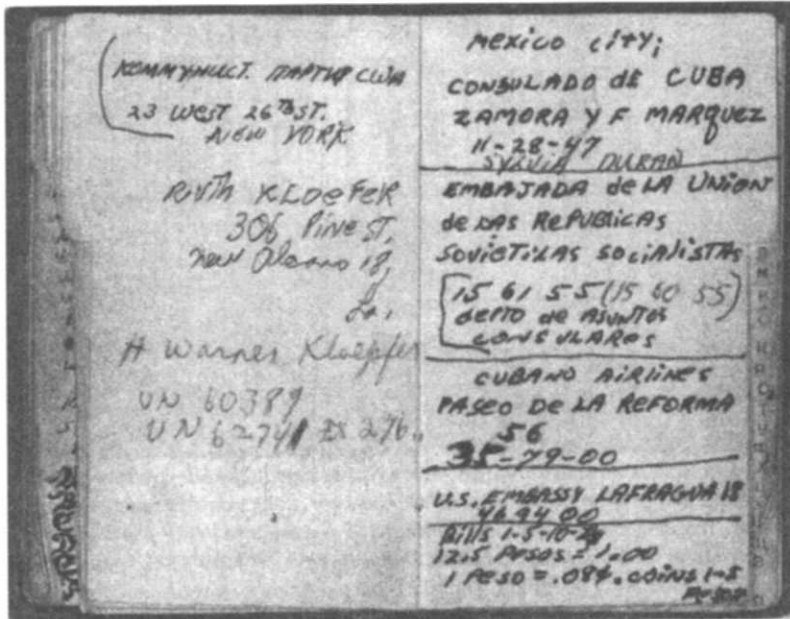 КОММУНИСТ. ПАРТИЯ США
23 WEST 26TH ST.
NEW YORK
RUTH KLOEFER
306 PINE ST,
New Orleans 18,
La,
H Warner Kloepfer
UN 60389
UN 62741 EX 276
MEXICO CITY;
CONSULADO de CUBA
ZAMORA Y F MARQUEZ
11-28-47
SYLVIA DURAN
EMBAJADA de LA UNION
de LAS REPUBLICAS
SOVIETICAS SOCIALISTAS
15 61 55 (15 60 55)
DEPTO de ASUNTOS
CONSULARES
CUBANO AIRLINES
PASEO DE LA REFORMA
56
35-79-00
U.S. EMBASSY LAFRAGUA 18
46 94 00
Bills 1-5-10-20
12.5 PESOS = 1.00
1 PESO = .08¢. COINS 1-5
PESOS